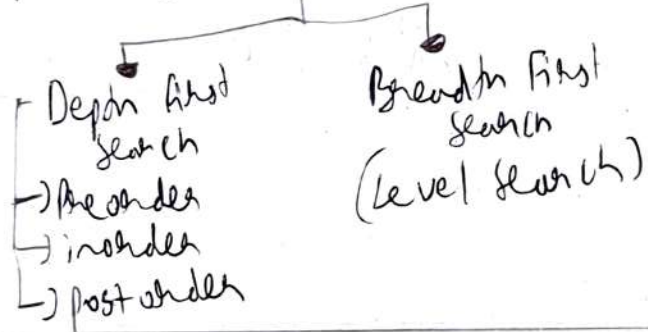 Depth first
search
→ Preorder
→ inorder
→ post order
Breadth First
search
(Level search)